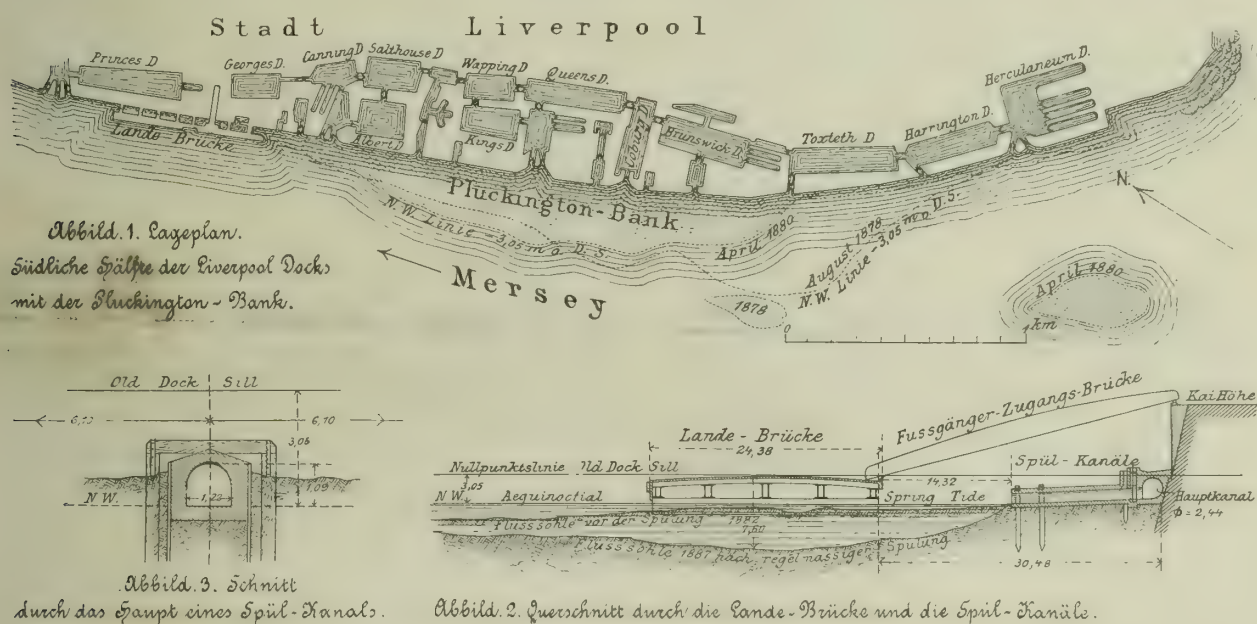 Stadt Liverpool
Princes D
Georges D.
Canning D
Salthouse D
Wapping D
Queens D.
Herculaneum D.
Lande-Brücke
Albert D
Kings D
Coburg D
Brunswick D.
Toxteth D
Harrington D.
Pluckington-Bank
N.
N.W. Linie - 3,05 m o. D. S.
April 1880
August 1878
N.W. Linie - 3,05 m o D. S.
Mersey
1878
April 1880
0 1 km
Abbild. 1. Lageplan.
Südliche Hälfte der Liverpool Docks
mit der Pluckington-Bank.
Old Dock Sill
6,10 6,10
3,05
1,09
1,22
N W.
Abbild. 3. Schnitt
durch das Haupt eines Spül-Kanals.
Fussgänger-Zugangs-Brücke
Kai Höhe
Lande-Brücke
24,38
Nullpunktslinie Old Dock Sill
3,05
14,32
Spül-Kanäle
N W. Aequinoctial Spring Tide
Hauptkanal
ϕ = 2,44
Flusssohle vor der Spülung 1882
7,60
Flusssohle 1887 nach regelmässiger Spülung
30,48
Abbild. 2. Querschnitt durch die Lande-Brücke und die Spül-Kanäle.